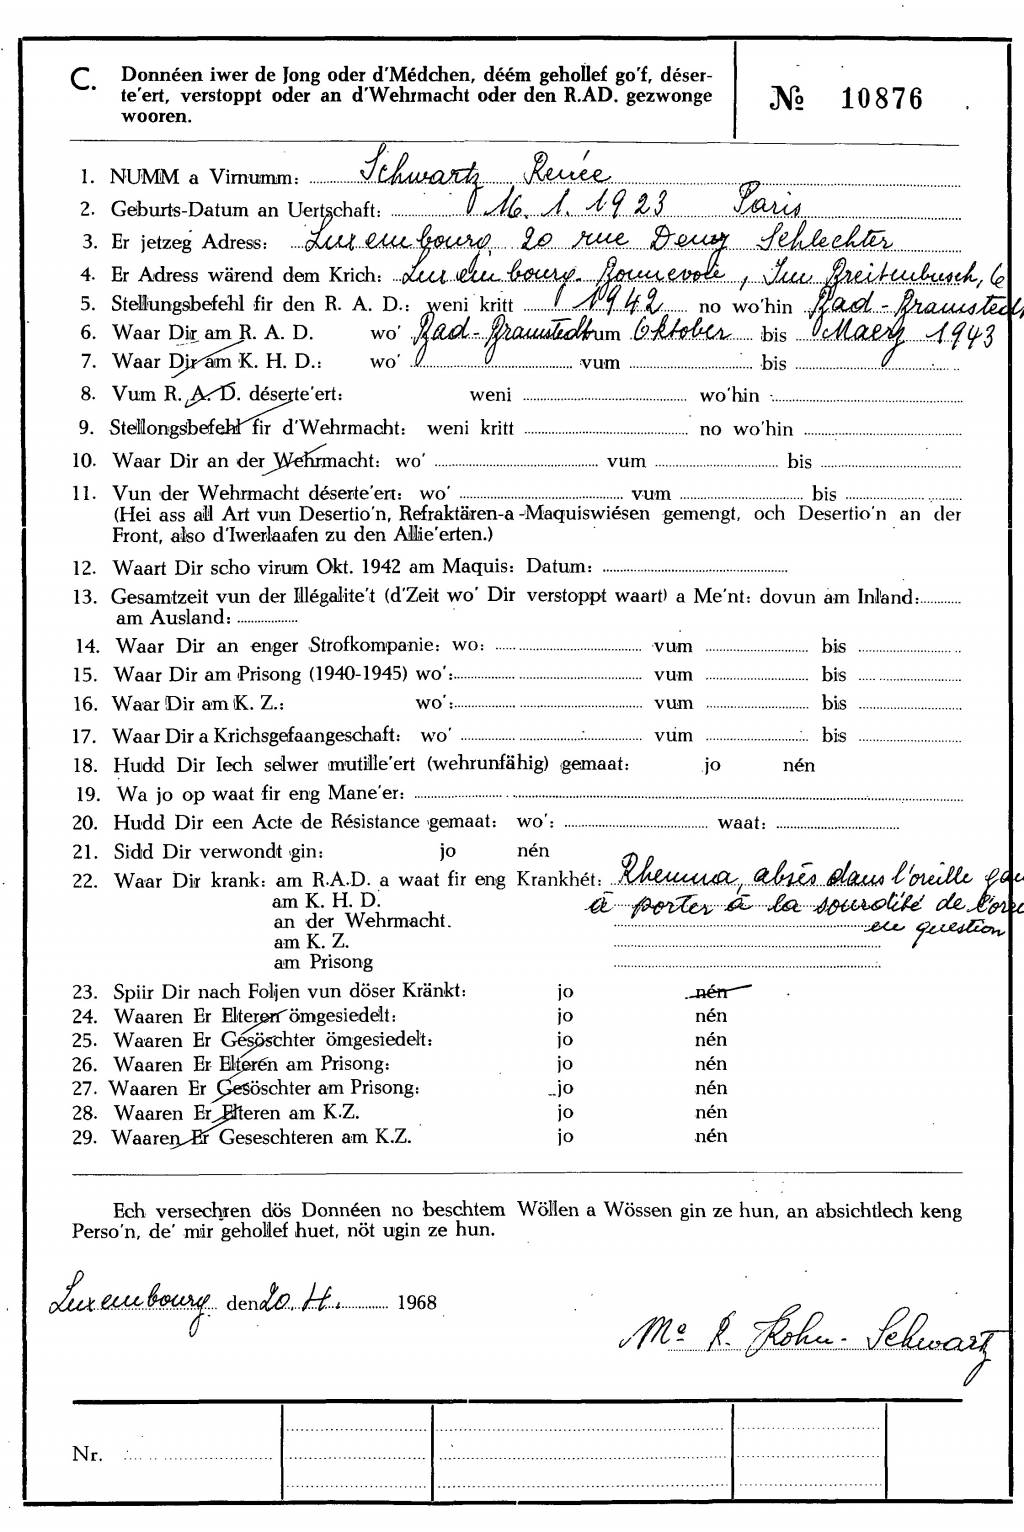 C. Donnéen iwer de Jong oder d'Médchen, déém gehollef go'f, déser-
te'ert, verstoppt oder an d'Wehrmacht oder den R.AD. gezwonge
wooren.
№ 10876
1. NUMM a Virnumm: Schwartz Renée
2. Geburts-Datum an Uertschaft: 16. 1. 1923 Paris
3. Er jetzeg Adress: Luxembourg, 20 rue Schlechter
4. Er Adress wärend dem Krich: Luxembourg-Bonnevoie, Im Breitenbusch, 6
5. Stellungsbefehl fir den R. A. D.: weni kritt 1942 no wo'hin Bad-Bramstedt
6. Waar Dir am R. A. D. wo' Bad-Bramstedt vum Oktober bis Maerz 1943
7. Waar Dir am K. H. D.: wo' vum bis
8. Vum R. A. D. déserte'ert: weni wo'hin :
9. Stellongsbefehl fir d'Wehrmacht: weni kritt no wo'hin
10. Waar Dir an der Wehrmacht: wo' vum bis
11. Vun der Wehrmacht déserte'ert: wo' vum bis
(Hei ass all Art vun Desertio'n, Refraktären-a-Maquiswiésen gemengt, och Desertio'n an der
Front, also d'Iwerlaafen zu den Allie'erten.)
12. Waart Dir scho virum Okt. 1942 am Maquis: Datum:
13. Gesamtzeit vun der Illégalite't (d'Zeit wo' Dir verstoppt waart) a Me'nt: dovun am Inland:
am Ausland:
14. Waar Dir an enger Strofkompanie: wo: vum bis
15. Waar Dir am Prisong (1940-1945) wo': vum bis
16. Waar Dir am K. Z.: wo': vum bis
17. Waar Dir a Krichsgefaangeschaft: wo' vum bis
18. Hudd Dir Iech selwer mutille'ert (wehrunfähig) gemaat: jo nén
19. Wa jo op waat fir eng Mane'er:
20. Hudd Dir een Acte de Résistance gemaat: wo': waat:
21. Sidd Dir verwondt gin: jo nén
22. Waar Dir krank: am R.A.D. a waat fir eng Krankhét: Rheuma, absès dans l'oreille
am K. H. D. à porter à la sourdité de
an der Wehrmacht. en question
am K. Z.
am Prisong
23. Spiir Dir nach Foljen vun döser Kränkt: jo nén
24. Waaren Er Elteren ömgesiedelt: jo nén
25. Waaren Er Gesöschter ömgesiedelt: jo nén
26. Waaren Er Elteren am Prisong: jo nén
27. Waaren Er Gesöschter am Prisong: jo nén
28. Waaren Er Elteren am K.Z. jo nén
29. Waaren Er Geseschteren am K.Z. jo nén
Ech versechren dös Donnéen no beschtem Wöllen a Wössen gin ze hun, an absichtlech keng
Perso'n, de' mir gehollef huet, nöt ugin ze hun.
Luxembourg den 20. 4. 1968
Me R. Kohn-Schwartz
Nr.